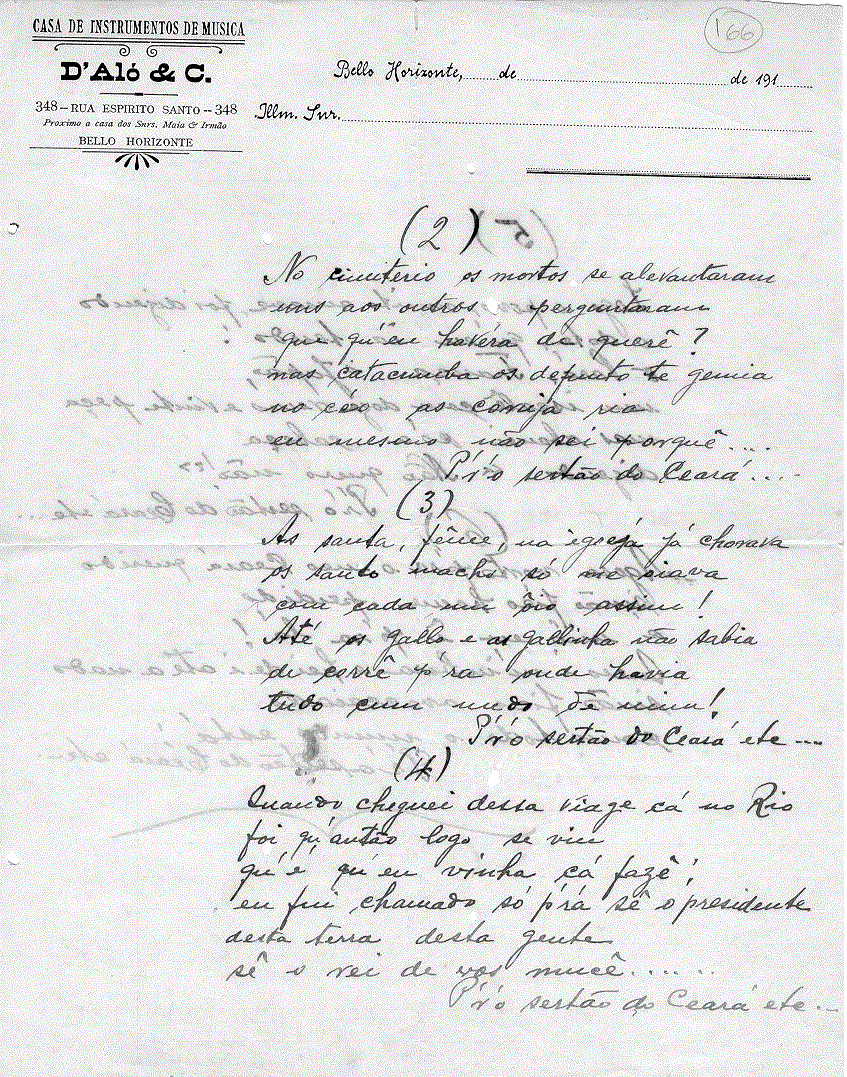 166
CASA DE INSTRUMENTOS DE MUSICA
D'Aló & C.
348—RUA ESPIRITO SANTO--348
Proximo a casa dos Snrs. Maia & Irmão
BELLO HORIZONTE
Bello Horizonte, de de 191
Illm. Snr.
(2)
No cimitério os mortos se alevantaram
uns aos outros perguntaram
que qu'eu havéra de querê?
mas catacumba os defunto te gemia
no céo as coruja ria
eu mesmo não sei porquê....
P'r'o sertão do Ceará...
(3)
As santa, fême, na egreja já chorava
os santo macho só me oiava
com cada um ôio assim!
Até os gallo e as gallinha não sabia
de corrê p'ra onde havia
tudo cum medo de mim!
P'r'o sertão do Ceará etc....
(4)
Quando cheguei dessa viage cá no Rio
foi qu'antão logo se viu
qu'é qu'eu vinha cá fazê;
eu fui chamado só p'rá sê o presidente
desta terra desta gente
sê o rei de vos mucê......
P'r'o sertão do Ceará etc...